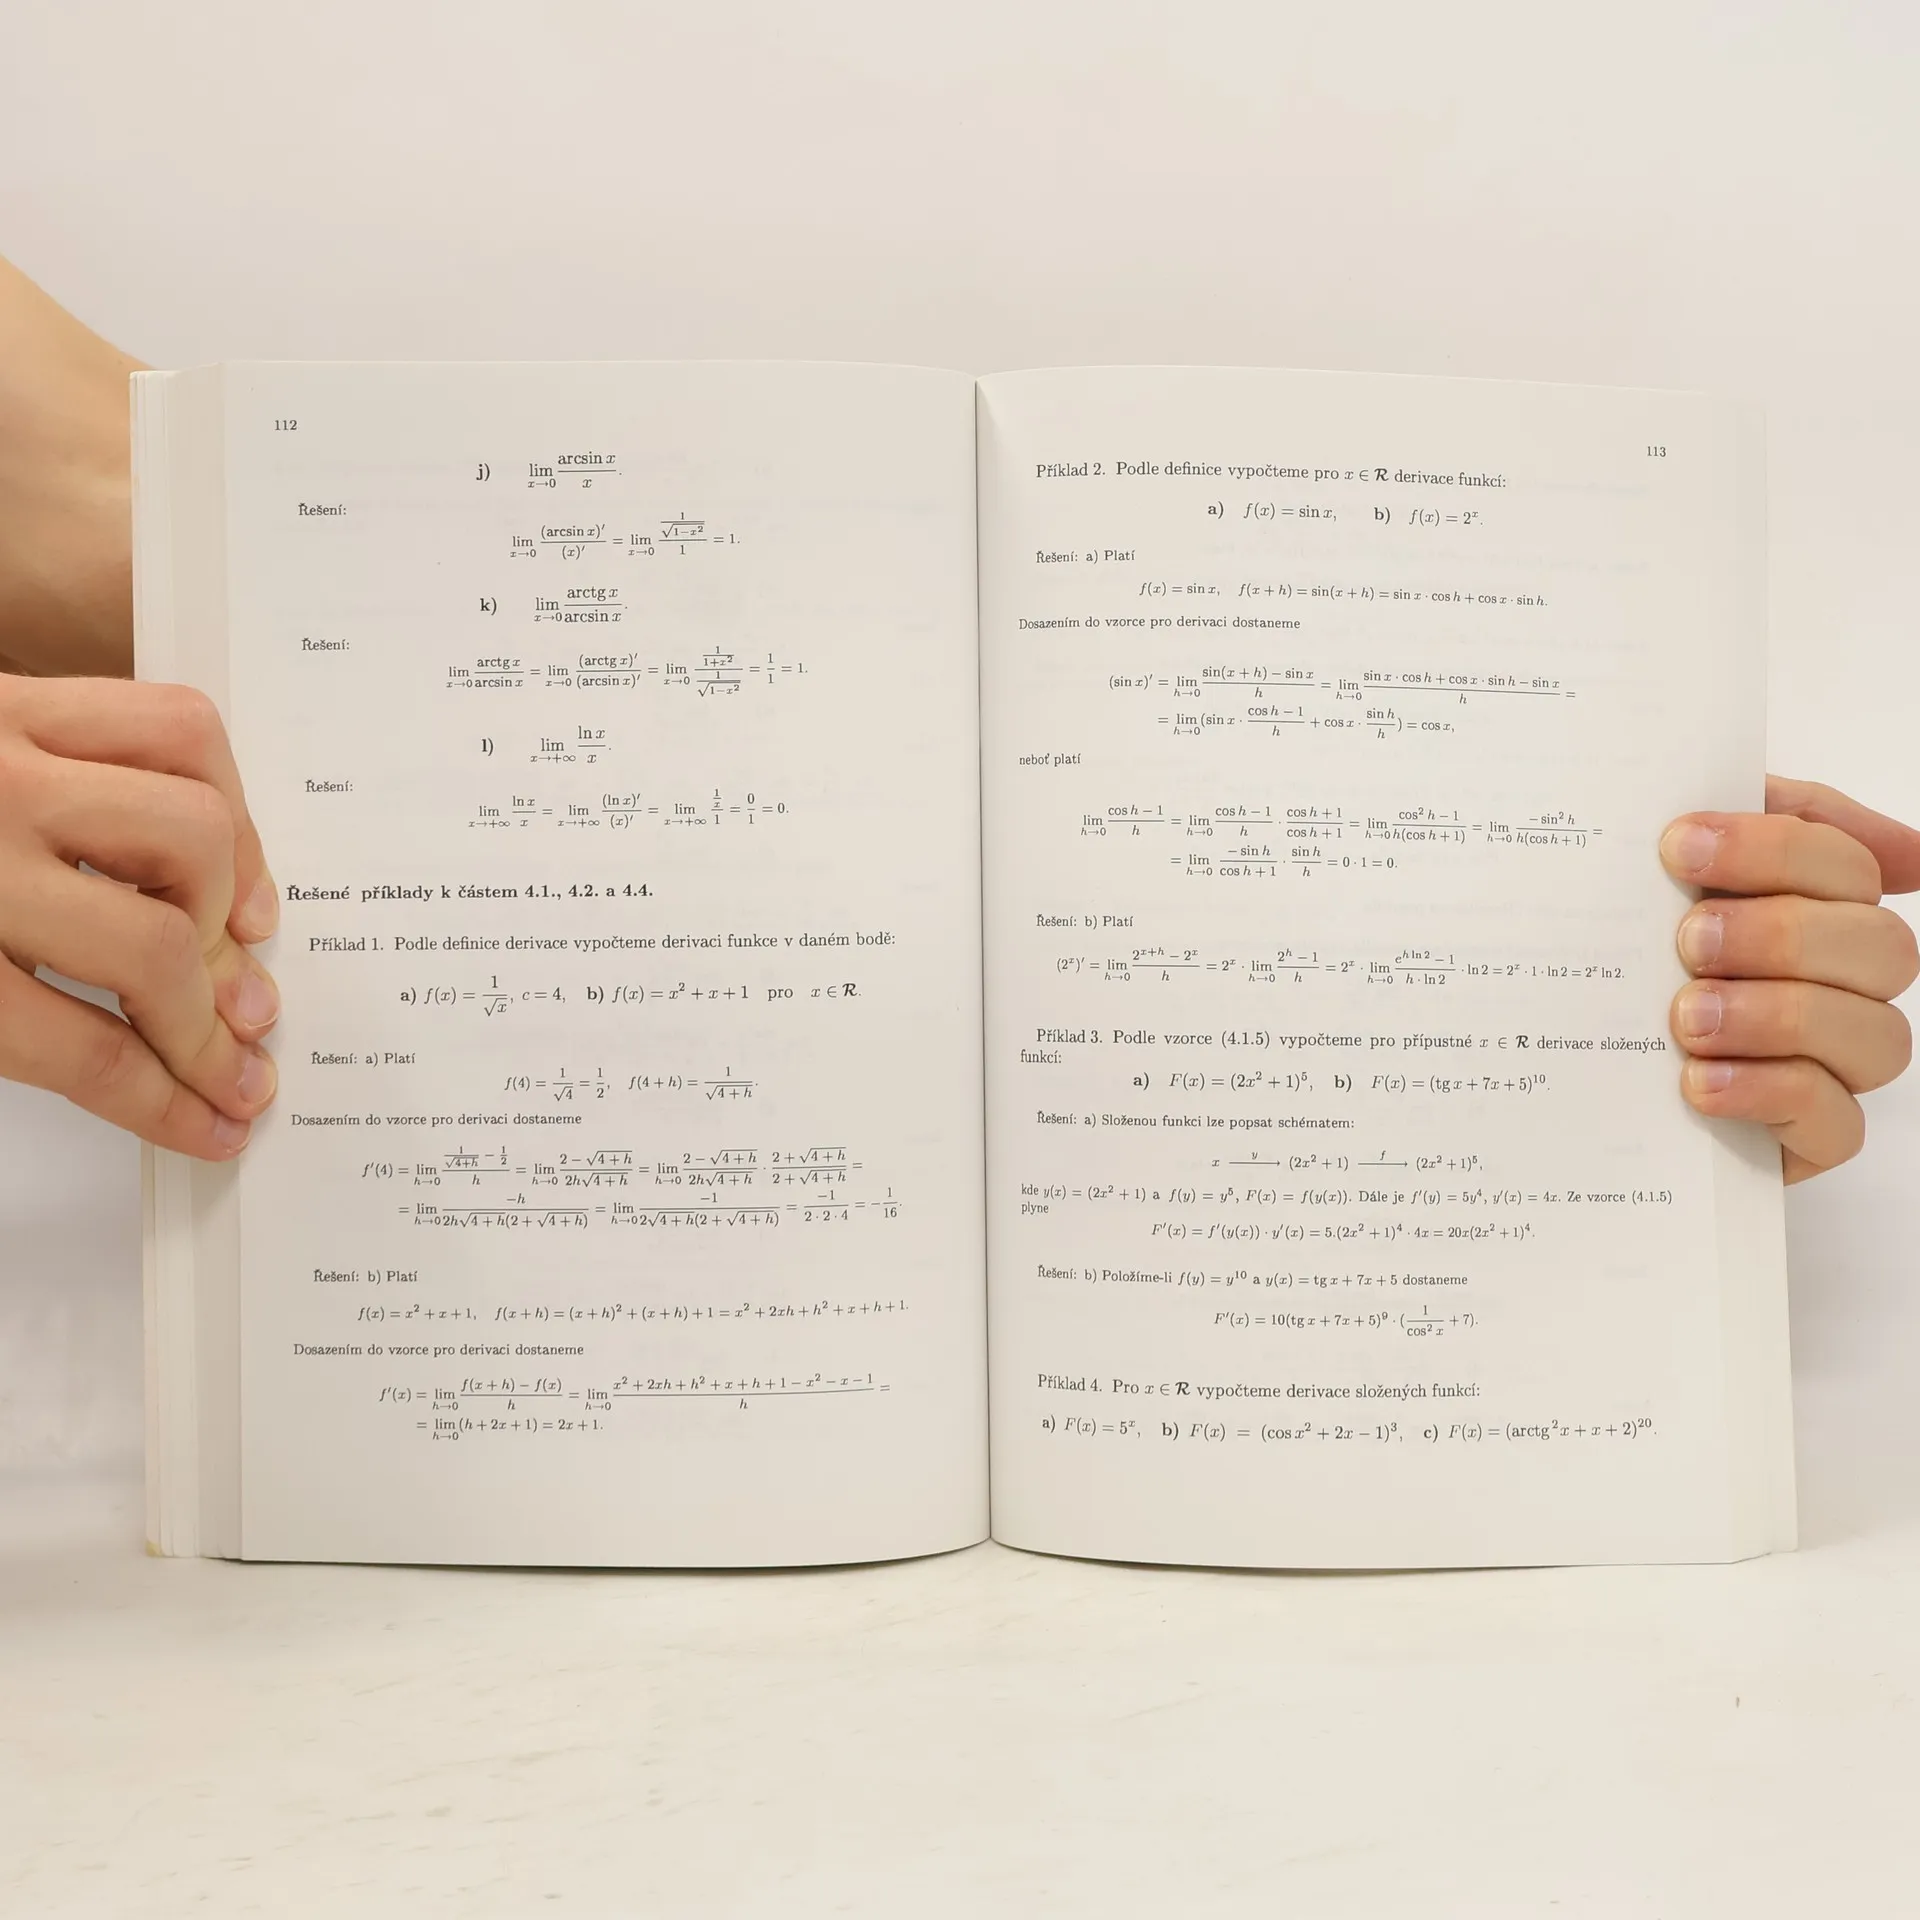 112
j) lim_{x→0} arcsin x / x.
Řešení:
lim_{x→0} (arcsin x)′ / (x)′ = lim_{x→0} (1/√(1−x²)) / 1 = 1.
k) lim_{x→0} arctg x / arcsin x.
Řešení:
lim_{x→0} arctg x / arcsin x = lim_{x→0} (arctg x)′ / (arcsin x)′ = lim_{x→0} (1/(1+x²)) / (1/√(1−x²)) = 1/1 = 1.
l) lim_{x→+∞} ln x / x.
Řešení:
lim_{x→+∞} ln x / x = lim_{x→+∞} (ln x)′ / (x)′ = lim_{x→+∞} (1/x) / 1 = 0/1 = 0.
Řešené příklady k částem 4.1., 4.2. a 4.4.
Příklad 1. Podle definice derivace vypočteme derivaci funkce v daném bodě:
a) f(x) = 1/√x, c = 4, b) f(x) = x² + x + 1 pro x ∈ R.
Řešení: a) Platí
f(4) = 1/√4 = 1/2, f(4 + h) = 1/√(4 + h).
Dosazením do vzorce pro derivaci dostaneme
f′(4) = lim_{h→0} (1/√(4+h) − 1/2) / h = lim_{h→0} (2 − √(4 + h)) / (2h√(4 + h)) = lim_{h→0} (2 − √(4 + h)) / (2h√(4 + h)) · (2 + √(4 + h)) / (2 + √(4 + h)) =
= lim_{h→0} −h / (2h√(4 + h)(2 + √(4 + h))) = lim_{h→0} −1 / (2√(4 + h)(2 + √(4 + h))) = −1 / (2 · 2 · 4) = −1/16.
Řešení: b) Platí
f(x) = x² + x + 1, f(x + h) = (x + h)² + (x + h) + 1 = x² + 2xh + h² + x + h + 1.
Dosazením do vzorce pro derivaci dostaneme
f′(x) = lim_{h→0} (f(x + h) − f(x)) / h = lim_{h→0} (x² + 2xh + h² + x + h + 1 − x² − x − 1) / h =
= lim_{h→0} (h + 2x + 1) = 2x + 1.
113
Příklad 2. Podle definice vypočteme pro x ∈ R derivace funkcí:
a) f(x) = sin x, b) f(x) = 2ˣ.
Řešení: a) Platí
f(x) = sin x, f(x + h) = sin(x + h) = sin x · cos h + cos x · sin h.
Dosazením do vzorce pro derivaci dostaneme
(sin x)′ = lim_{h→0} (sin(x + h) − sin x) / h = lim_{h→0} (sin x · cos h + cos x · sin h − sin x) / h =
= lim_{h→0} (sin x · (cos h − 1)/h + cos x · sin h / h) = cos x,
neboť platí
lim_{h→0} (cos h − 1) / h = lim_{h→0} (cos h − 1) / h · (cos h + 1) / (cos h + 1) = lim_{h→0} (cos² h − 1) / (h(cos h + 1)) = lim_{h→0} −sin² h / (h(cos h + 1)) =
= lim_{h→0} −sin h / (cos h + 1) · sin h / h = 0 · 1 = 0.
Řešení: b) Platí
(2ˣ)′ = lim_{h→0} (2^{x+h} − 2ˣ) / h = 2ˣ · lim_{h→0} (2^h − 1) / h = 2ˣ · lim_{h→0} (e^{h ln 2} − 1) / (h · ln 2) · ln 2 = 2ˣ · 1 · ln 2 = 2ˣ ln 2.
Příklad 3. Podle vzorce (4.1.5) vypočteme pro přípustné x ∈ R derivace složených
funkcí:
a) F(x) = (2x² + 1)⁵, b) F(x) = (tg x + 7x + 5)¹⁰.
Řešení: a) Složenou funkci lze popsat schématem:
x —y→ (2x² + 1) —f→ (2x² + 1)⁵,
kde y(x) = (2x² + 1) a f(y) = y⁵, F(x) = f(y(x)). Dále je f′(y) = 5y⁴, y′(x) = 4x. Ze vzorce (4.1.5)
plyne
F′(x) = f′(y(x)) · y′(x) = 5.(2x² + 1)⁴ · 4x = 20x(2x² + 1)⁴.
Řešení: b) Položíme-li f(y) = y¹⁰ a y(x) = tg x + 7x + 5 dostaneme
F′(x) = 10(tg x + 7x + 5)⁹ · (1/cos² x + 7).
Příklad 4. Pro x ∈ R vypočteme derivace složených funkcí:
a) F(x) = 5ˣ, b) F(x) = (cos x² + 2x − 1)³, c) F(x) = (arctg² x + x + 2)²⁰.